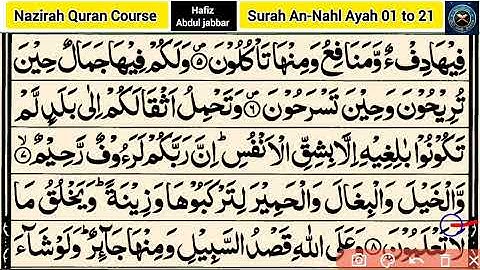 Nazirah Quran Course
Hafiz
Abdul jabbar
Surah An-Nahl Ayah 01 to 21
فِيْهَا دِفْءٌ وَّمَنَافِعُ وَمِنْهَا تَاْكُلُوْنَ ۝٥ وَلَكُمْ فِيْهَا جَمَالٌ حِيْنَ
تُرِيْحُوْنَ وَحِيْنَ تَسْرَحُوْنَ ۝٦ وَتَحْمِلُ اَثْقَالَكُمْ اِلٰى بَلَدٍ لَّمْ
تَكُوْنُوْا بٰلِغِيْهِ اِلَّا بِشِقِّ الْاَنْفُسِ ؕ اِنَّ رَبَّكُمْ لَرَءُوْفٌ رَّحِيْمٌ ۝٧
وَّالْخَيْلَ وَالْبِغَالَ وَالْحَمِيْرَ لِتَرْكَبُوْهَا وَزِيْنَةً ؕ وَيَخْلُقُ مَا
لَا تَعْلَمُوْنَ ۝٨ وَعَلَى اللّٰهِ قَصْدُ السَّبِيْلِ وَمِنْهَا جَآئِرٌ ؕ وَلَوْ شَآءَ